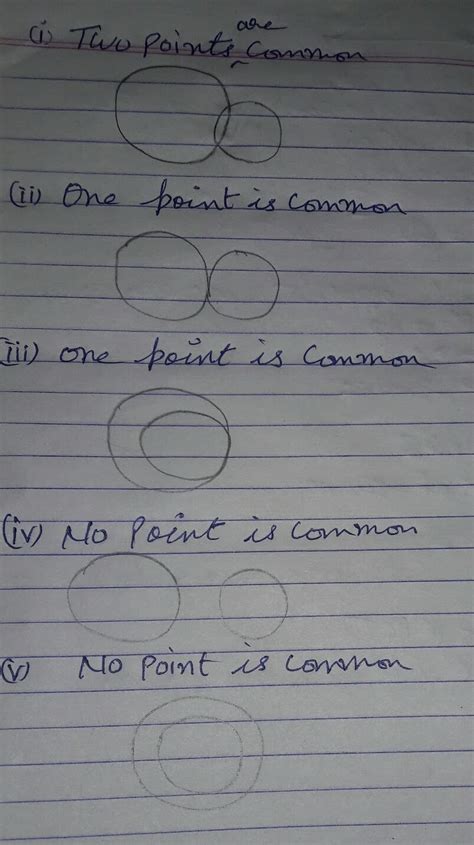 (i) Two points are common
(ii) One point is common
(iii) one point is common
(iv) No Point is common
(v) No point is common